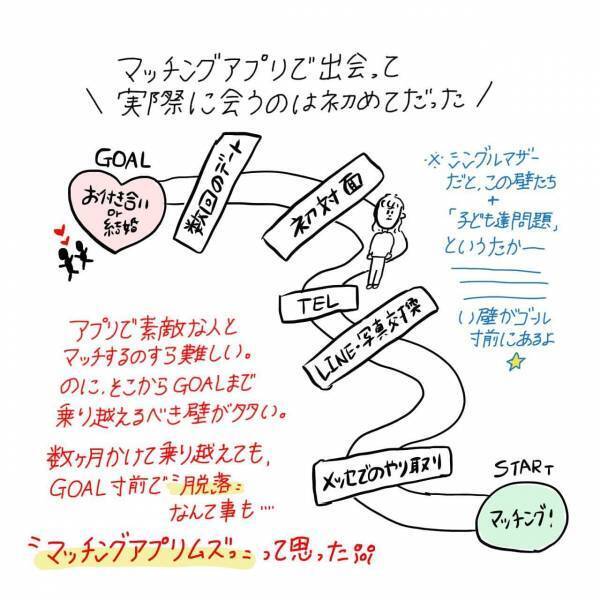 マッチングアプリで出会って
実際に会うのは初めてだった
GOAL
お付き合い
or
結婚
数回のデート
初対面
TEL
LINE・写真交換
メッセでのやり取り
START
マッチング!
※シングルマザー
だと、この壁たち
+
「子ども達問題」
というたかー
い壁がゴール
寸前にあるよ
アプリで素敵な人と
マッチするのすら難しい。
のに、そこからGOALまで
乗り越えるべき壁が多い。
数ヶ月かけて乗り越えても、
GOAL寸前で脱落
なんて事も…
マッチングアプリムズっって思った